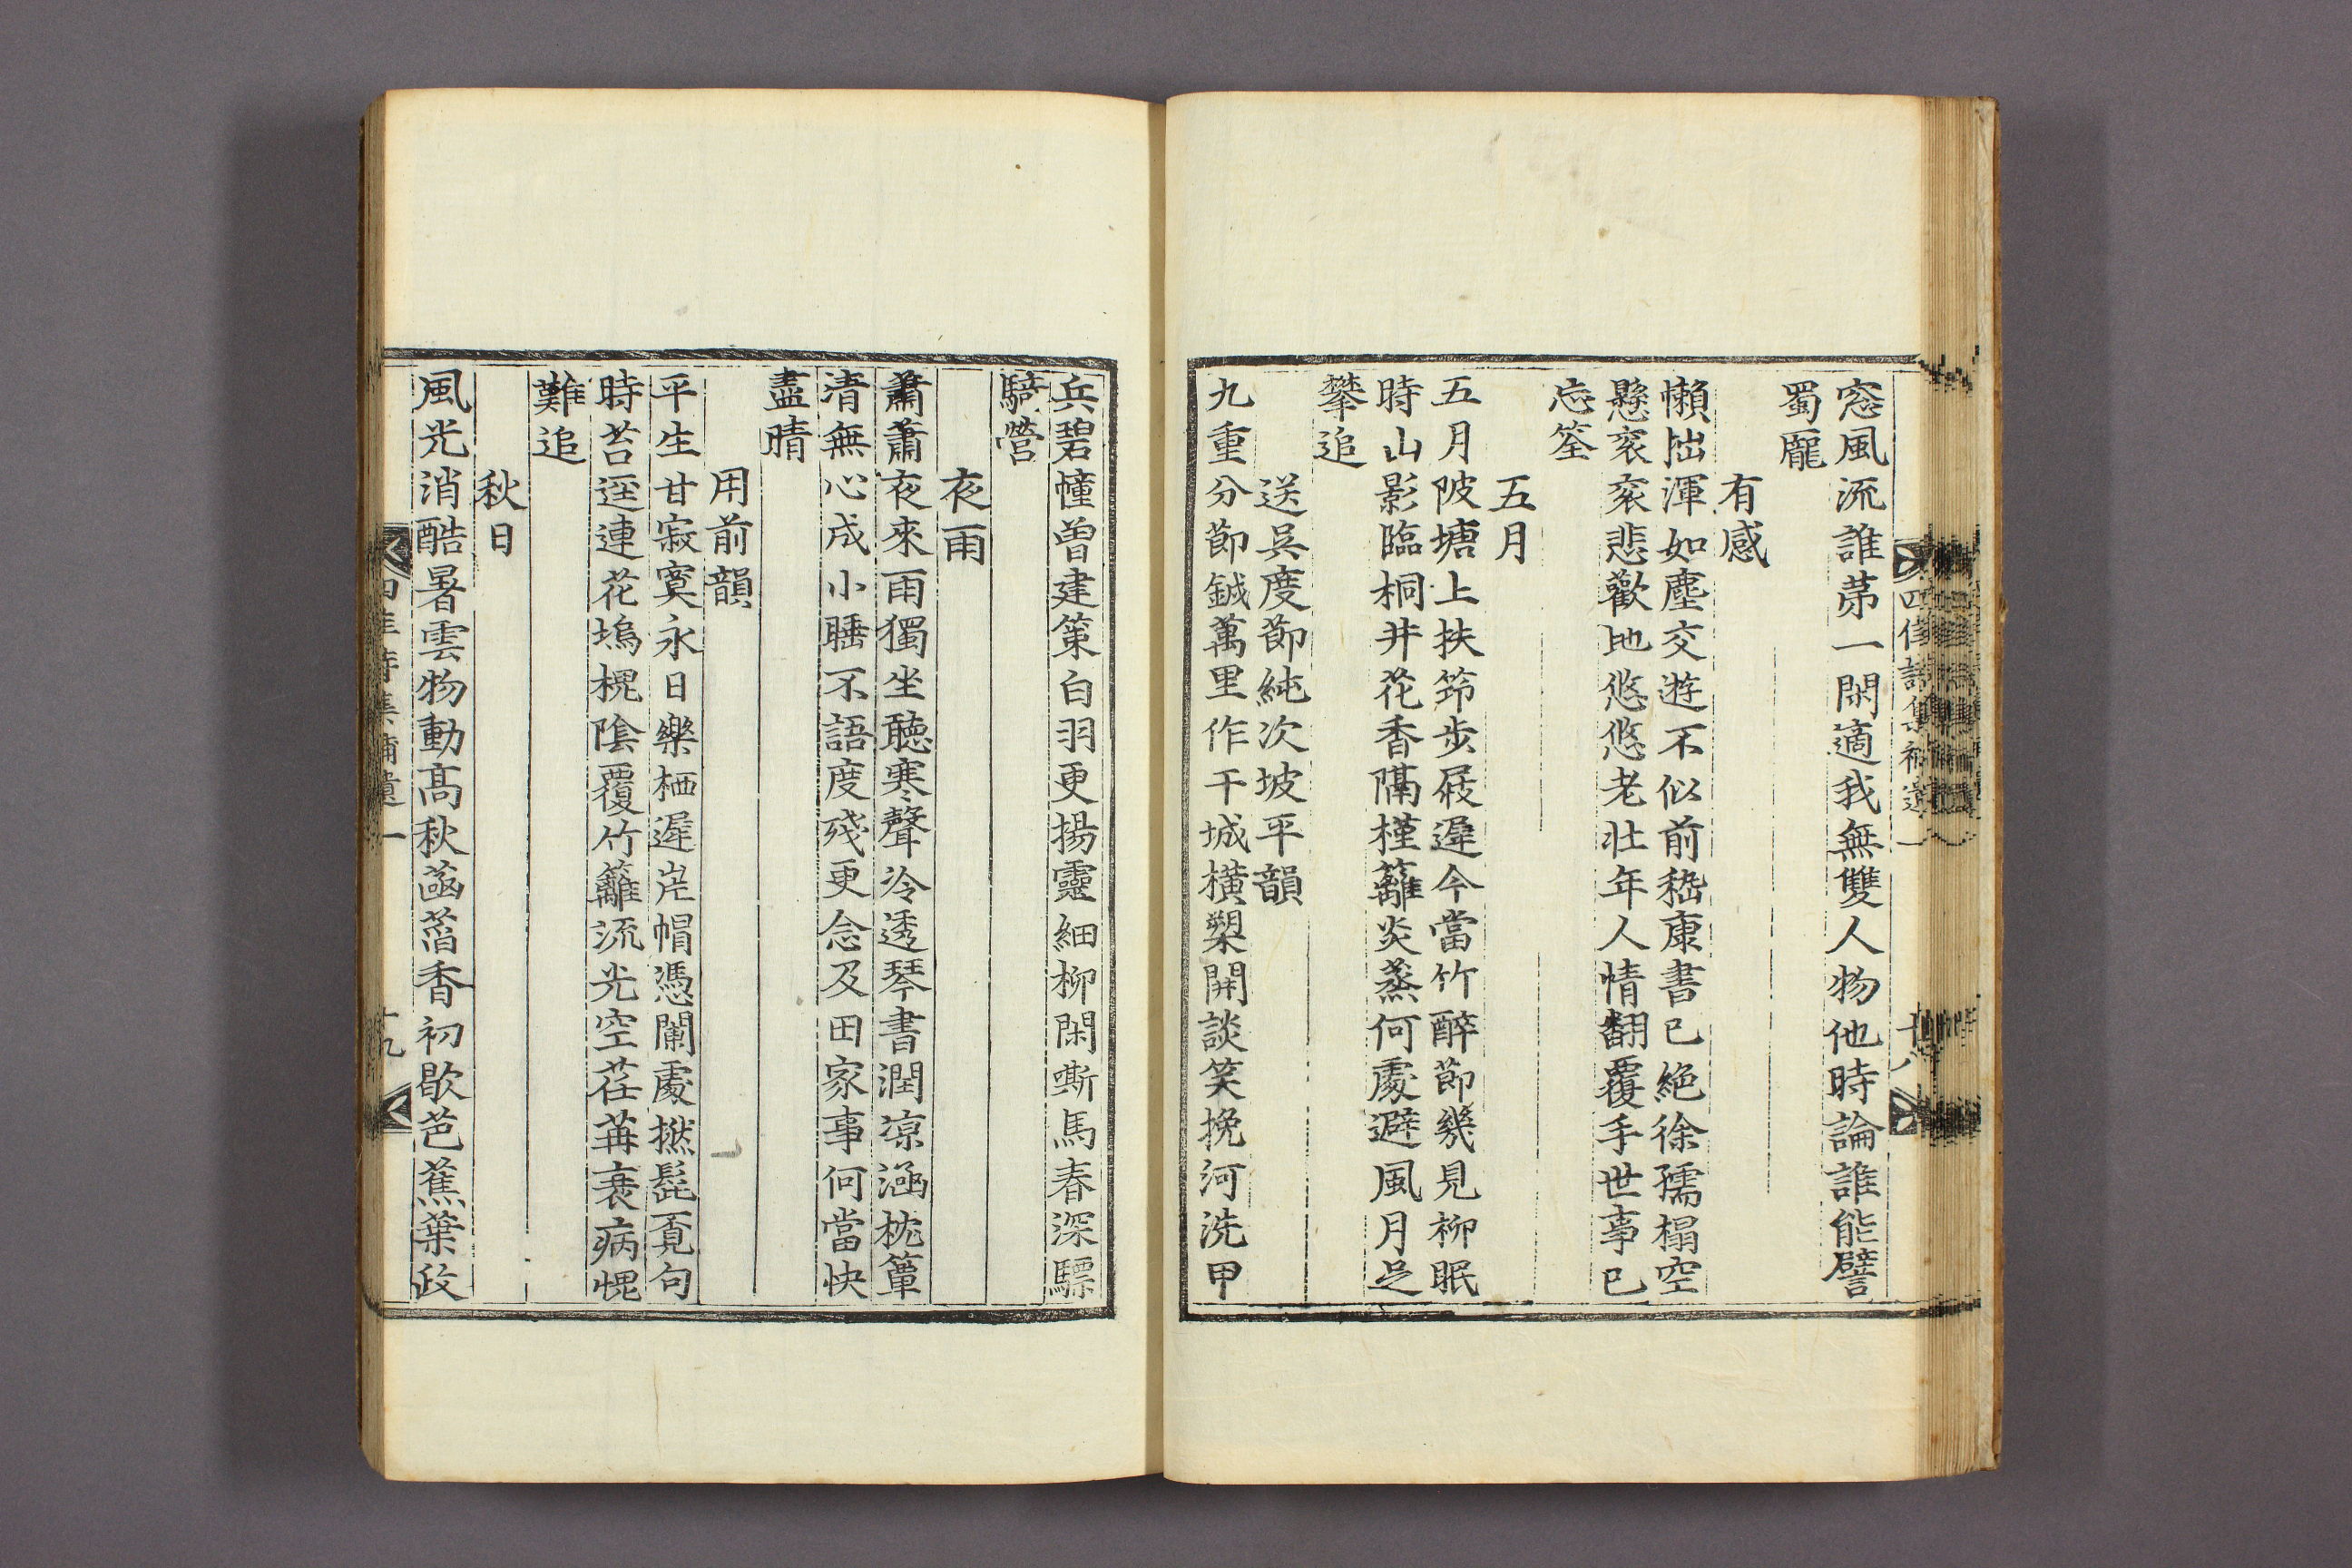 窓風流誰苐一閑適我無雙人物他時論誰能譬
蜀龐
有感
懶拙渾如塵交遊不似前嵇康書已絶徐孺榻空
懸衮衮悲歡地悠悠老壯年人情翻覆手世事已
忘筌
五月
五月陂塘上扶笻步屐遟今當竹醉節幾見柳眠
時山影臨桐井花香隔槿籬炎蒸何處避風月足
攀追
送吳度節純次坡平韻
九重分節鉞萬里作干城橫槊開談笑挽河洗甲
兵碧幢曽建策白羽更揚靈細柳閑嘶馬春深驃
騎營
夜雨
蕭蕭夜來雨獨坐聽寒聲冷透琴書潤凉涵枕簟
清無心成小睡不語度殘更念及田家事何當快
盡晴
用前韻
平生甘寂寞永日樂栖遲岸帽憑闌處撚髭覓句
時苔逕連花塢槐陰覆竹籬流光空荏苒衰病愧
難追
秋日
風光消酷暑雲物動髙秋菡萏香初歇芭蕉葉政
四佳詩集補遺一
十八
四佳詩集補遺一
十九